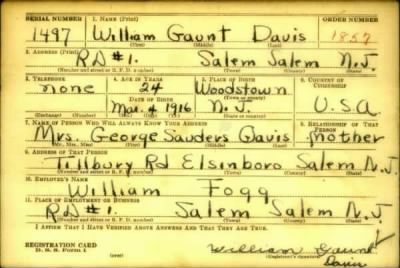 SERIAL NUMBER 1. NAME (Print) ORDER NUMBER
1497 William Gaunt Davis 1857
(First) (Middle) (Last)
2. ADDRESS (Print)
RD#1. Salem Salem N.J.
(Number and street or R. F. D. number) (Town) (County) (State)
3. TELEPHONE 4. AGE IN YEARS 5. PLACE OF BIRTH 6. COUNTRY OF CITIZENSHIP
none 24 Woodstown
DATE OF BIRTH (Town or county)
Mar. 4 1916 N.J. U.S.A
(Mo.) (Day) (Yr.) (State or country)
7. NAME OF PERSON WHO WILL ALWAYS KNOW YOUR ADDRESS 8. RELATIONSHIP OF THAT PERSON
Mrs. George Sauders Davis Mother
(Mr., Mrs., Miss) (First) (Middle) (Last)
9. ADDRESS OF THAT PERSON
Tillbury Rd Elsinboro Salem N.J.
(Number and street or R. F. D. number) (Town) (County) (State)
10. EMPLOYER'S NAME
William Fogg
11. PLACE OF EMPLOYMENT OR BUSINESS
RD#1. Salem Salem N.J.
(Number and street or R. F. D. number) (Town) (County) (State)
I AFFIRM THAT I HAVE VERIFIED ABOVE ANSWERS AND THAT THEY ARE TRUE.
REGISTRATION CARD
D. S. S. Form 1
William Gaunt
Davis
(Registrant's signature)